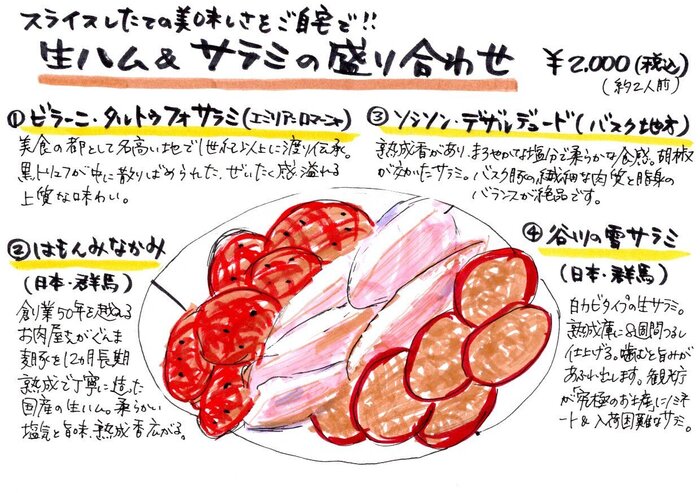 スライスしたての美味しさをご自宅で!!
生ハム&サラミの盛り合わせ ¥2.000(税込)
(約2人前)
①ビラーニ・タルトゥフォサラミ(エミリアーロマーニャ)
美食の都として名高い地で1世紀以上に渡り伝承。
黒トリュフが中に散りばめられた、ぜいたく感溢れる
上質な味わい。
③ソシソン・デザルデュード(バスク地方)
熟成香があり、まろやかな塩分で柔らかな食感。胡椒
が効かたサラミ。バスク豚の繊細な肉質と脂身の
バランスが絶品です。
②はもんみなかみ
(日本・群馬)
創業50年を越える
お肉屋さんがぐんま
麹豚を12ヵ月長期
熟成で丁寧に造った
国産の生ハム。柔らかい
塩気と旨味、熟成香広がる。
④谷川の雪サラミ
(日本・群馬)
白カビタイプの生サラミ。
熟成庫に8週間つるし
仕上げる。噛むと旨みが
あふれ出します。観光庁
が「究極のお土産」にノミネ
ート&入荷困難なサラミ。